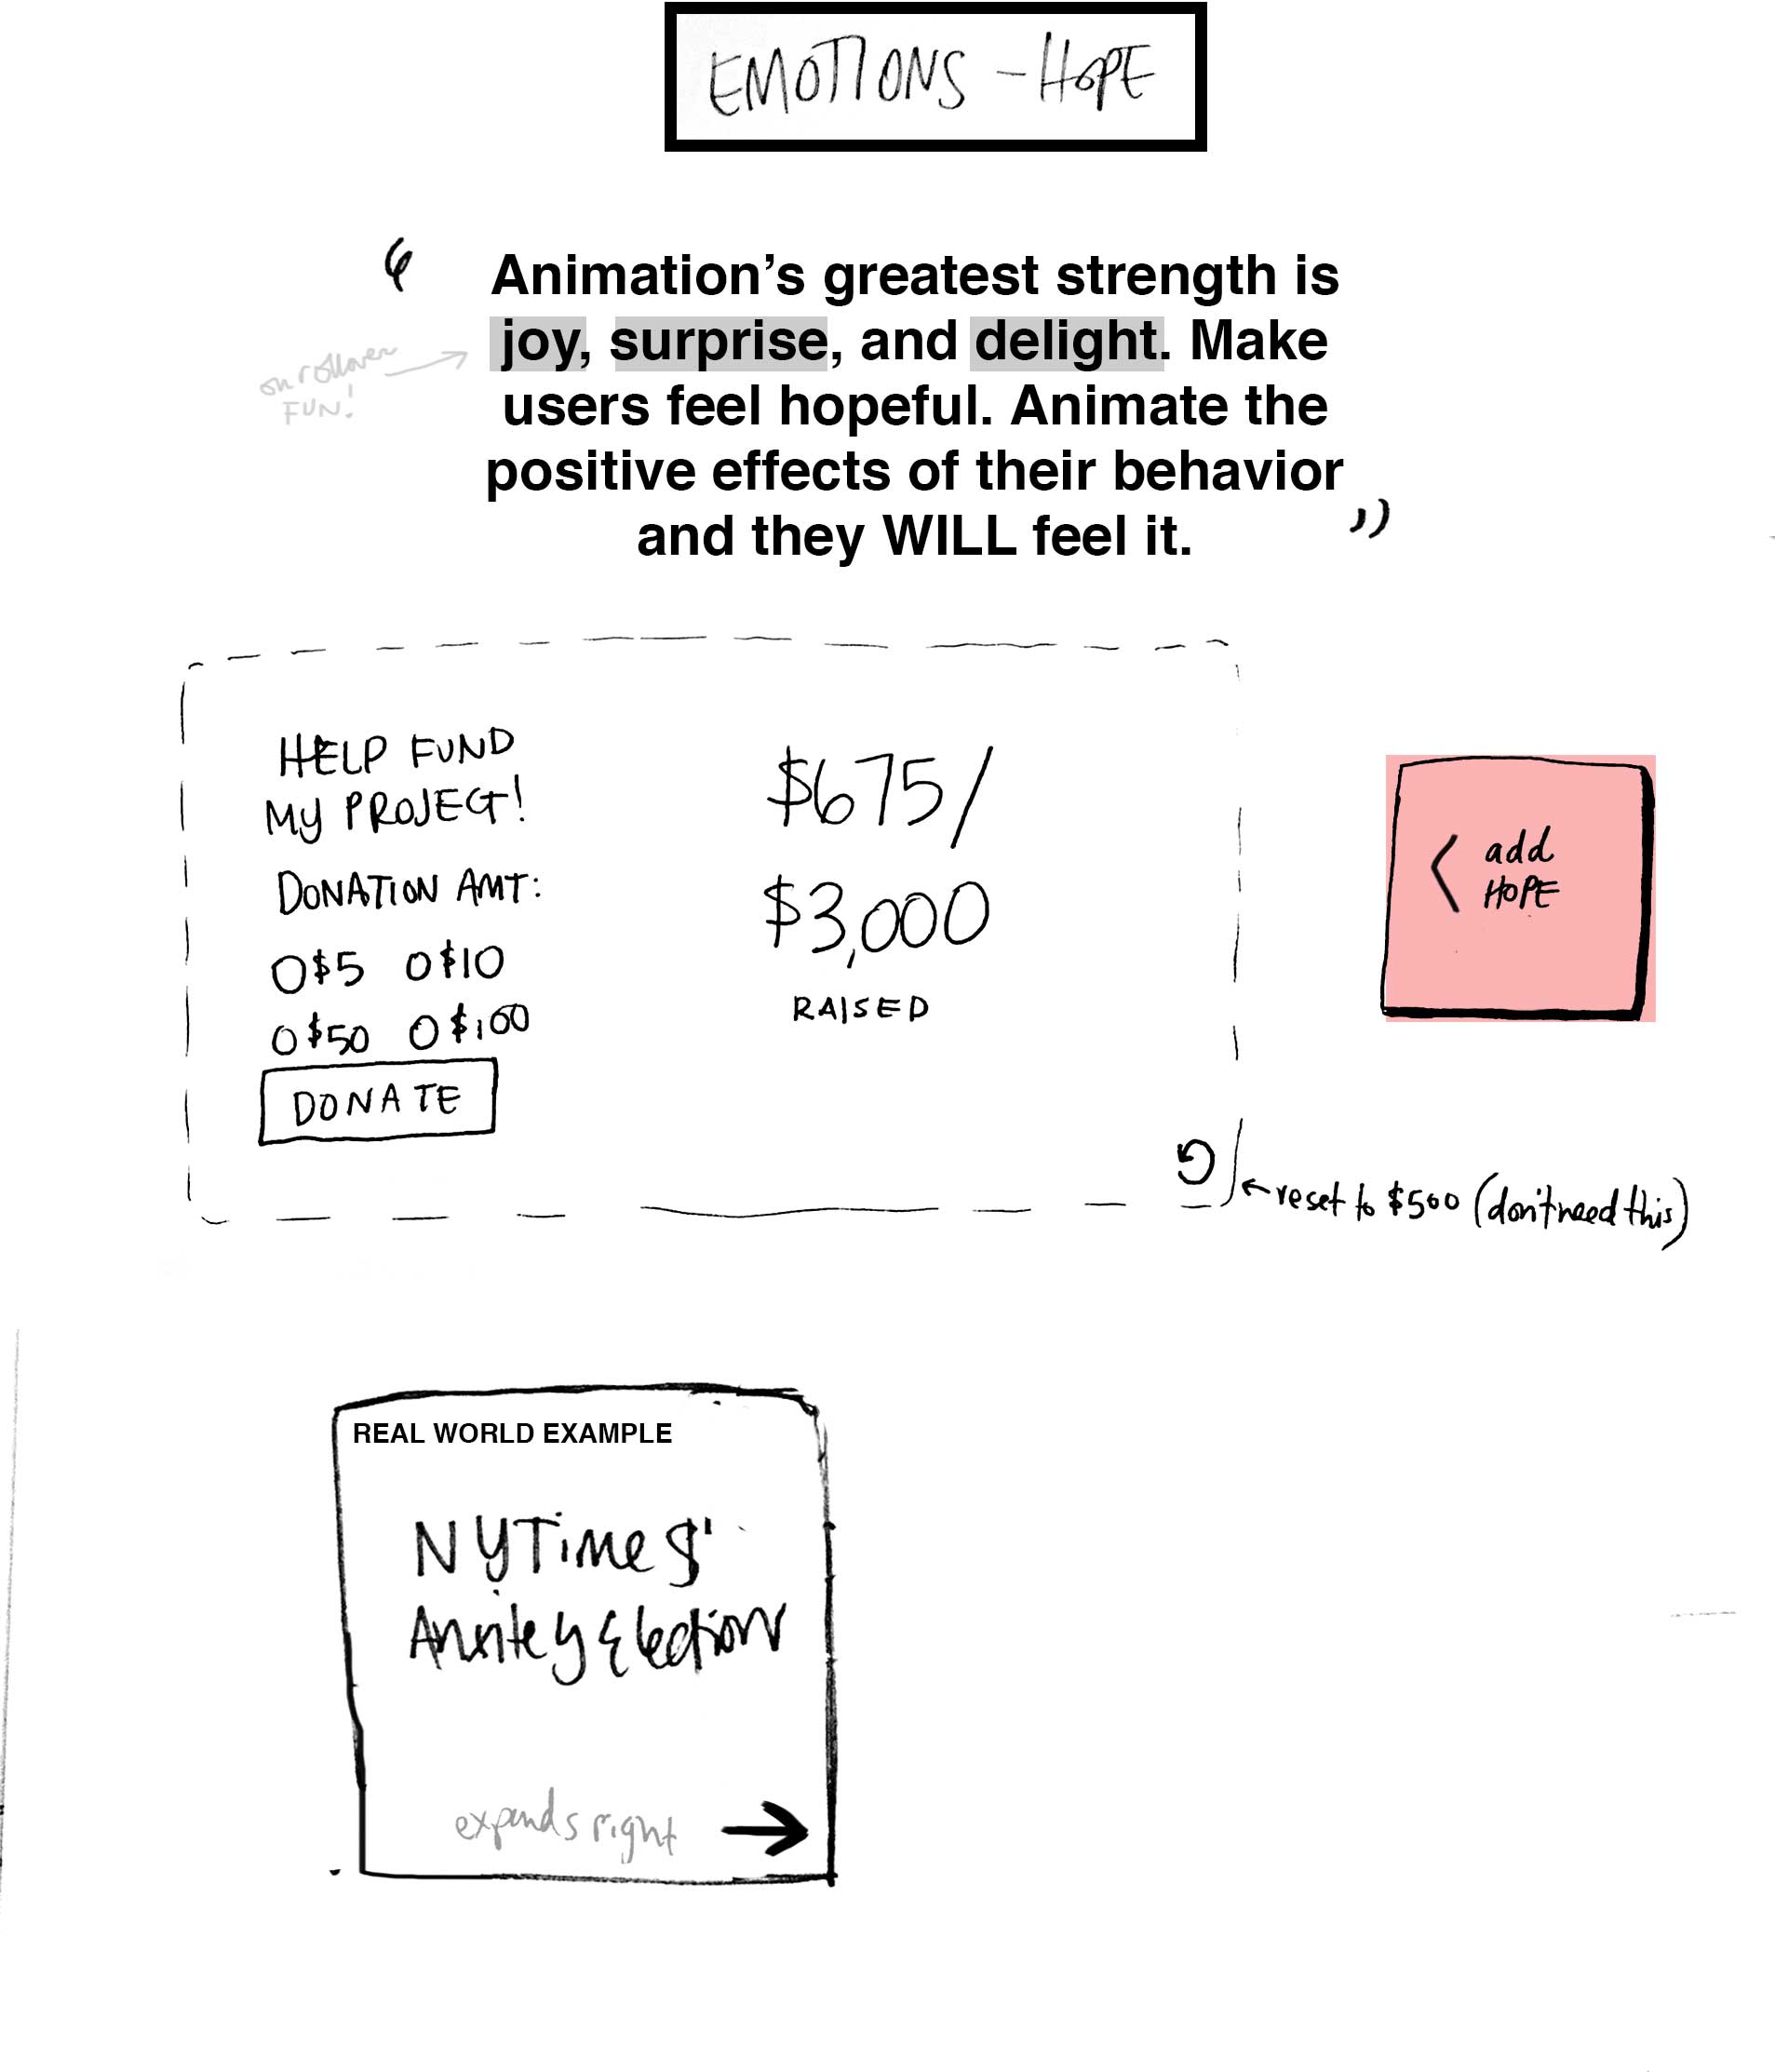 EMOTIONS - HOPE
“ Animation’s greatest strength is
joy, surprise, and delight. Make
users feel hopeful. Animate the
positive effects of their behavior
and they WILL feel it. ”
on rollover
FUN!
HELP FUND
MY PROJECT!
DONATION AMT:
O $5 O $10
O $50 O $100
DONATE
$675/
$3,000
RAISED
< add
HOPE
← reset to $500 (don't need this)
REAL WORLD EXAMPLE
NYTimes'
Election
expands right →